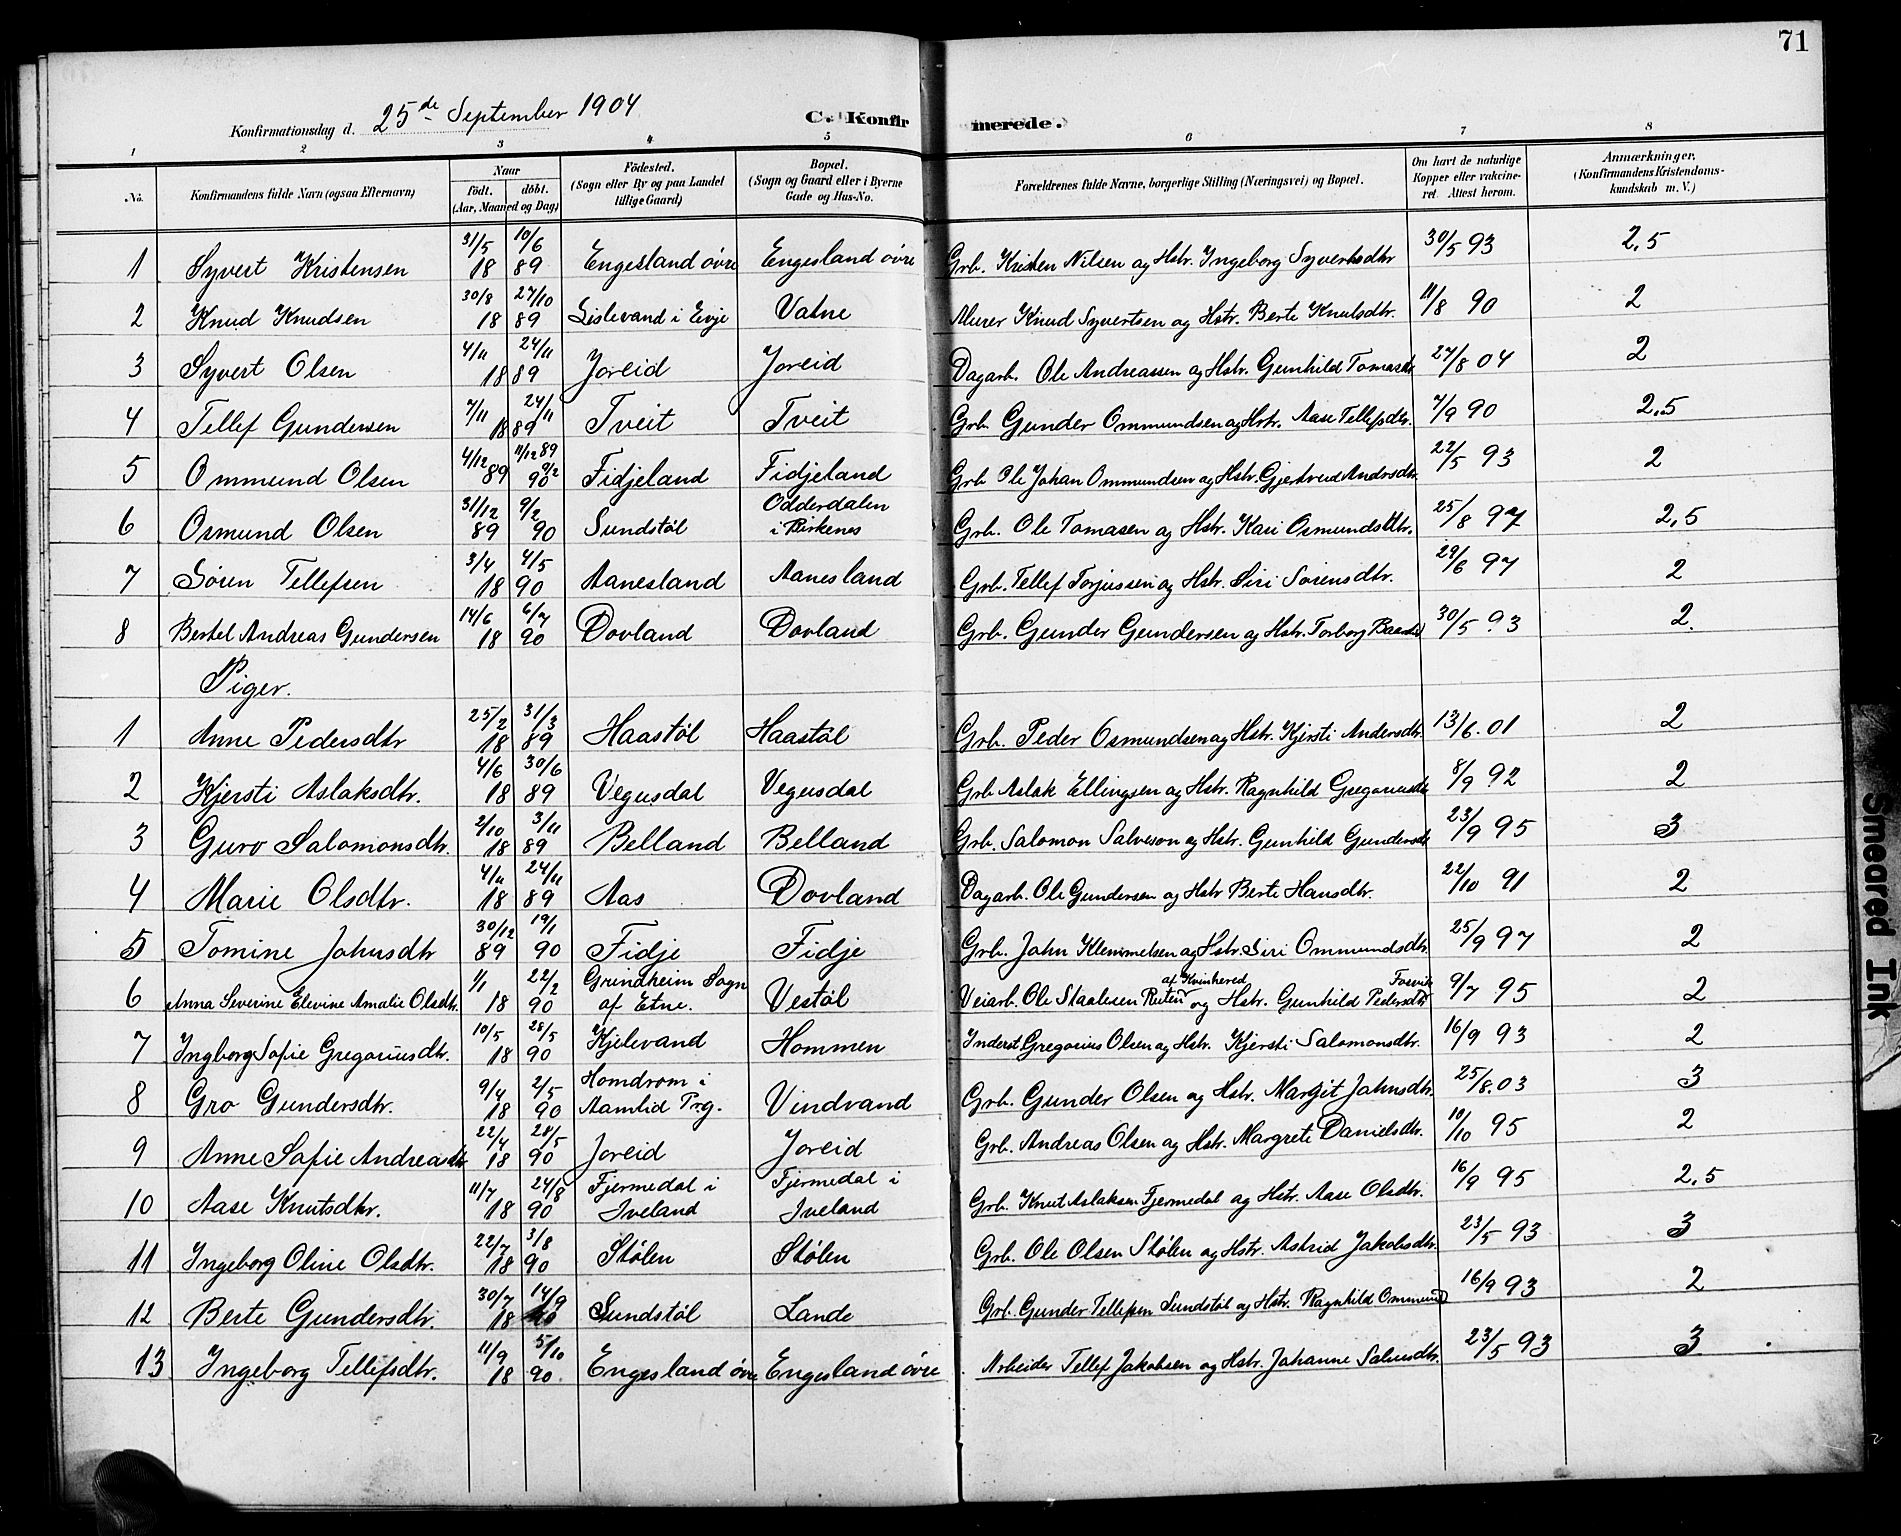 71
Konfirmationsdag d. 25de September 1904 C. Konfirmerede.
1 2 3 4 5 6 7 8
No. Konfirmandens fulde Navn (ogsaa Efternavn) Naar Født. døbt. (Aar, Maaned og Dag) Fødested. (Sogn eller By og paa Landet tillige Gaard) Bopæl. (Sogn og Gaard eller i Byerne Gade og Hus-No. Forældrenes fulde Navne, borgerlige Stilling (Næringsvei) og Bopæl. Om havt de naturlige Kopper eller vakcineret. Attest herom. Anmærkninger. (Konfirmandens Kristendomskundskab m. V.)
1 Syvert Kristensen 31/5 10/6 18 89 Engesland övre Engesland övre Grb. Kristen Nilsen og Hstr. Ingeborg Syvertsdtr 30/5 93 2,5
2 Knud Knudsen 30/8 27/10 18 89 Lislevand i Evje Vatne Murer Knud Syvertsen og Hstr. Berte Knutsdtr. 11/8 90 2
3 Syvert Olsen 4/11 24/11 18 89 Joreid Joreid Dagarb. Ole Andreassen og Hstr. Gunhild Tomasdtr 27/8 04 2
4 Tellef Gundersen 7/11 24/11 18 89 Tveit Tveit Grb. Gunder Ommundsen og Hstr. Aase Tellefsdtr. 7/9 90 2,5
5 Ommund Olsen 4/12 89 11/12 89 9/2 90 Fidjeland Fidjeland Grb. Ole Johan Ommundsen og Hstr. Gjertrud Andersdtr. 22/5 93 2
6 Osmund Olsen 31/12 89 9/2 90 Sundstøl Odderdalen i Birkenes Grb. Ole Tomasen og Hstr. Kari Osmundsdtr. 25/8 97 2,5
7 Sören Tellefsen 3/4 4/5 18 90 Aanesland Aanesland Grb. Tellef Torjussen og Hstr. Siri Sörensdtr. 29/6 97 2
8 Bertel Andreas Gundersen 14/6 6/7 18 90 Dovland Dovland Grb. Gunder Gundersen og Hstr. Torborg 30/5 93 2.
Piger.
1 Anne Pedersdtr 25/2 31/3 18 89 Haastøl Haastøl Grb. Peder Osmundsen og Hstr. Kjersti Andersdtr. 13/6.01 2
2 Kjersti Aslaksdtr. 4/6 30/6 18 89 Vegusdal Vegusdal Grb Aslak Ellingsen og Hstr. Ragnhild Gregoriusdtr 8/9 92 2
3 Guro Salomonsdtr. 2/10 3/11 18 89 Belland Belland Grb. Salomon Salveson og Hstr. Gunhild Gundersdtr 23/9 95 3
4 Marie Olsdtr. 4/11 24/11 18 89 Aas Dovland Dagarb. Ole Gundersen og Hstr Berte Hansdtr. 22/10 91 2
5 Tomine Johnsdtr 30/12 89 19/1 90 Fidje Fidje Grb. John Klemmetsen og Hstr. Siri Ommundsdtr. 25/9 97 2
6 Anna Severine Elevine Amalie Olsdtr. 1/1 22/2 18 90 Grindheim Sogn af Etne. Vestøl Veiarb. Ole Staalesen af Kvinherred og Hstr. Gunhild Pedersdtr 9/7 95 2
7 Ingborg Sofie Gregoriusdtr. 10/5 28/5 18 90 Kjelevand Hommen Inderst. Gregorius Olsen og Hstr. Kjersti Salomonsdtr. 16/9 93 2
8 Gro Gundersdtr. 9/4 2/5 18 90 Homdrom i Aamlid Prg. Vindvand Grb. Gunder Olsen og Hstr. Margit Johnsdtr. 25/8.03 3
9 Anne Sofie Andreasdtr 22/4 28/5 18 90 Joreid Joreid Grb. Andreas Olsen og Hstr. Margrete Danielsdtr. 10/10 95 2
10 Aase Knutsdtr. 11/7 24/8 18 90 Fjermedal i Iveland Fjermedal i Iveland Grb. Knut Aslaksen Fjermedal og Hstr. Aase Olsdtr. 16/9 95 2,5
11 Ingeborg Oline Olsdtr. 22/7 3/8 18 90 Stølen Stølen Grb. Ole Olsen Stølen og Hstr. Astrid Jakobsdtr. 23/5 93 3
12 Berte Gundersdtr. 30/7 14/9 18 90 Sundstøl Lande Grb. Gunder Tellefsen Sundstøl og Hstr. Ragnhild 16/9 93 2
13 Ingeborg Tellefsdtr. 11/9 5/10 18 90 Engesland övre Engesland övre Arbeider Tellef Jakobsen og Hstr. Johanne 23/5 93 3
Smeared Ink